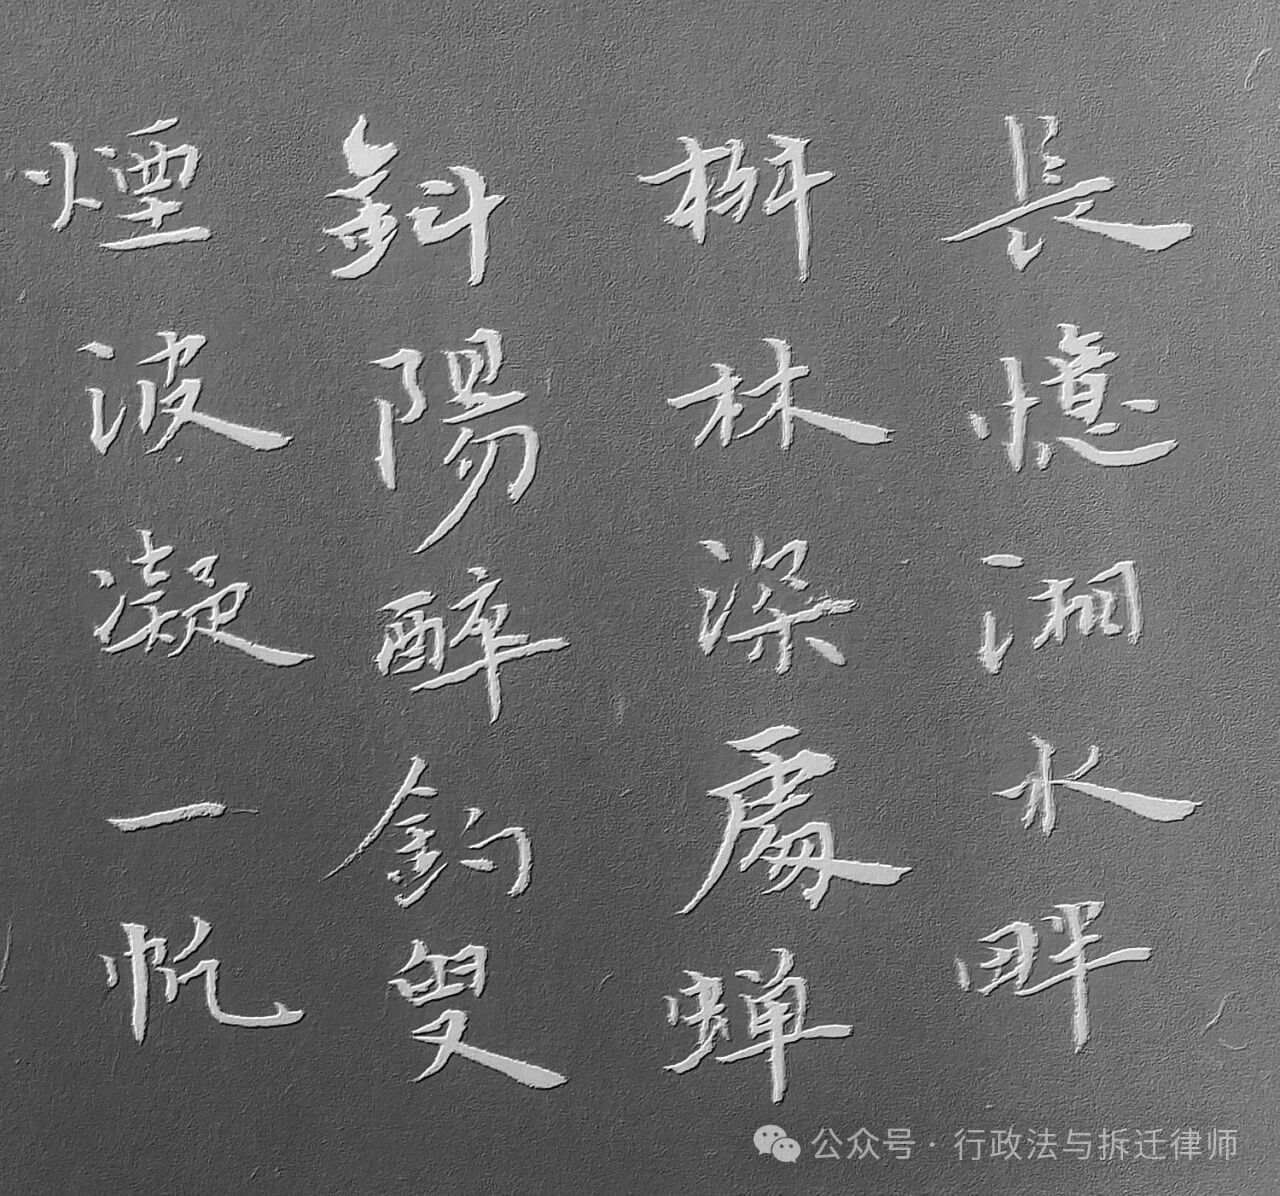 長憶湘水畔
林深處蝉
斜陽醉釣叟
煙波凝一帆
公众号·行政法与拆迁律师